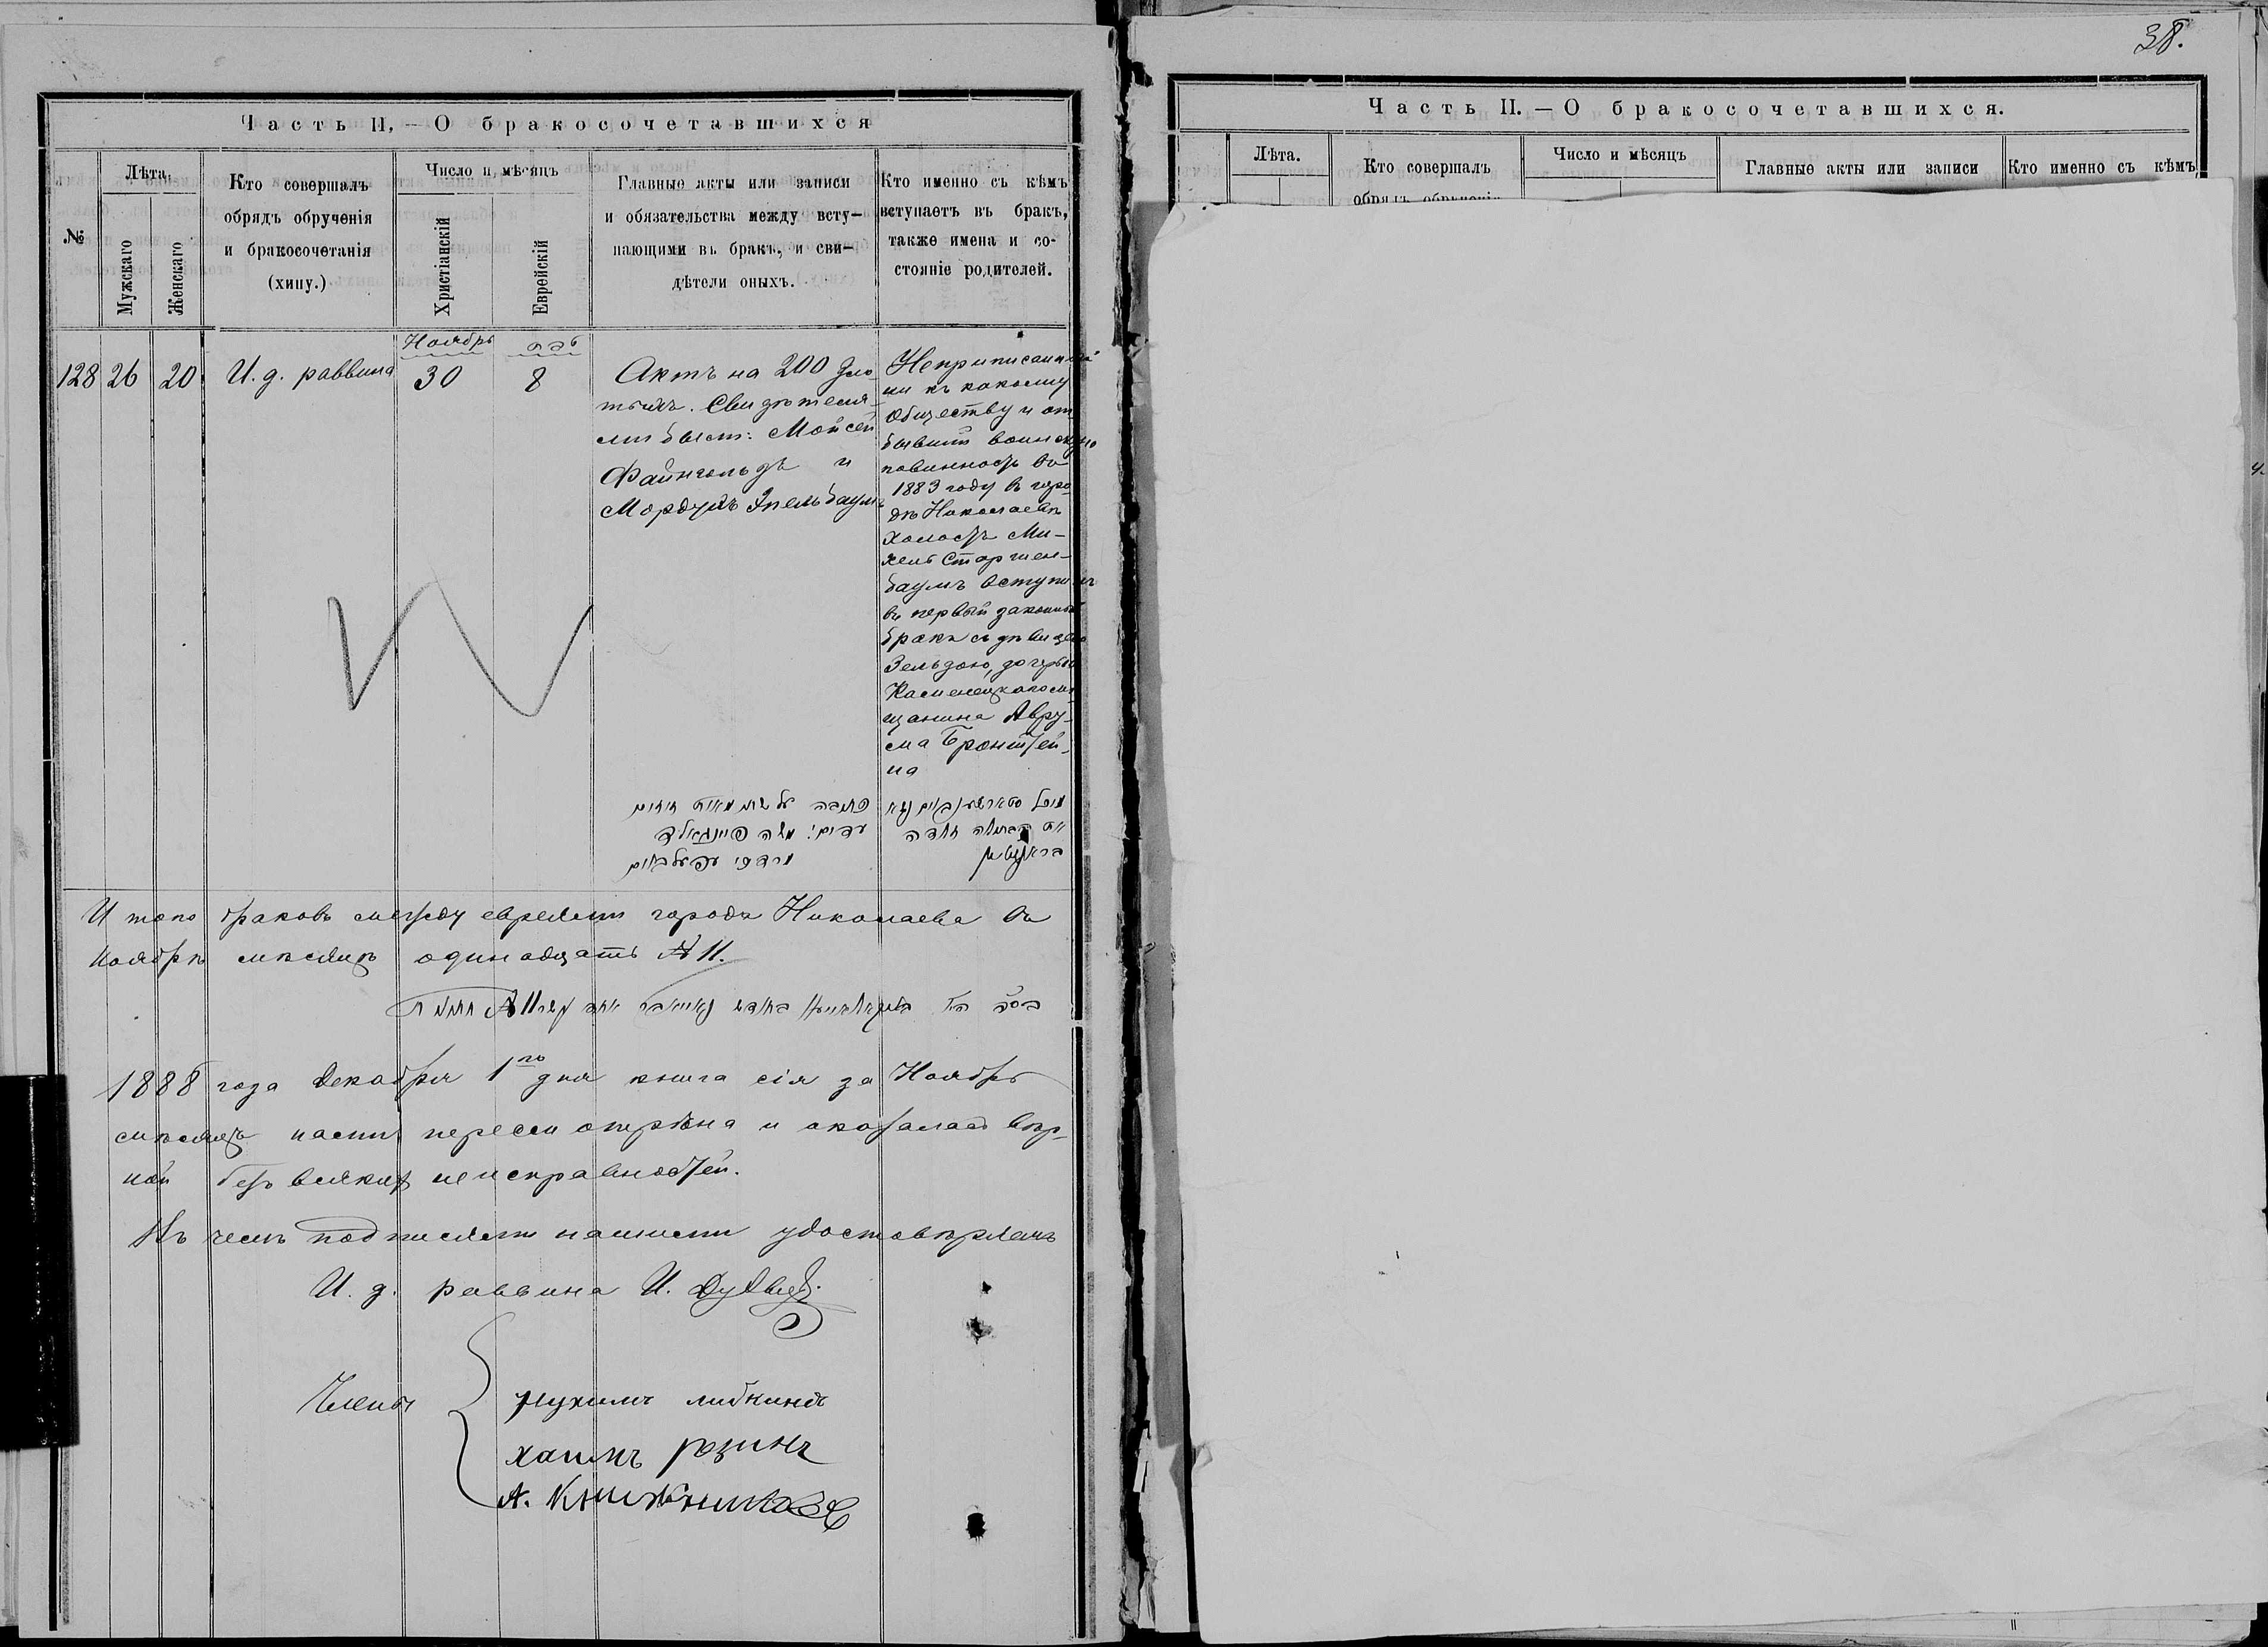 38.
Часть II,—О бракосочетавшихся
№
Лѣта,
Мужскаго
Женскаго
Кто совершалъ
обрядъ обрученія
и бракосочетанія
(хипу.)
Число и мѣсяцъ
Христіанскій
Еврейскій
Главные акты или записи
и обязательства между всту-
пающими въ бракъ, и сви-
дѣтели оныхъ.
Кто именно съ кѣмъ
вступаетъ въ бракъ,
также имена и со-
стояніе родителей.
Ноябрь
128 26 20 И. д. раввина 30 8
Актъ на 200 зло-
тыхъ. Свидѣтеля-
ми были: Мойсей
Файнгольдъ и
Мордухъ Эпельбаумъ
Неприписанный
ни къ какому
обществу и от-
бывшій воинскую
повинность въ
1883 году въ горо-
дѣ Николаевѣ
холостъ Ми-
хель Старшен-
баумъ вступилъ
въ первый законный
бракъ съ дѣвицею
Зельдою, дочерью
Каменецкаго мѣ-
щанина Авру-
ма Бронштей-
на
עדים: משה פיינגאלד
Итого браковъ между евреями города Николаева въ
Ноябрѣ мѣсяцѣ одинадцать № 11.
1888 года Декабря 1го дня книга сія за Ноябрь
мѣсяцъ нами пересмотрѣна и оказалась вѣр-
ной безъ всякихъ неисправностей.
Въ чемъ подписями нашими удостовѣряемъ
И. д. раввина И.
Члены
Нухимъ Либкиндъ
Хаимъ Розинъ
А. Книжниковъ
Часть II.—О бракосочетавшихся.
Лѣта.
Кто совершалъ
обрядъ обрученія
Число и мѣсяцъ
Главные акты или записи
Кто именно съ кѣмъ